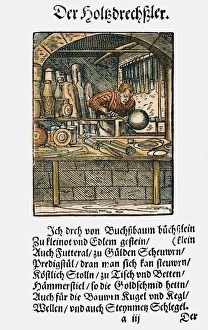 Der Holtzdrechßler.
Ich dreh von Buchßbaum büchßlein
(klein
Zu kleinot vnd Edlem gestein /
Auch Futteral / zu Gülden Scheuwrn /
Predigstül / dran man sich kan steuwrn /
Köstlich Stolln / zu Tisch vnd Betten /
Hämmerstiel / so die Goldschmid hetten
Auch für die Bauwrn Kugel vnd Kegl /
Wellen / vnd auch Steynmetz Schlegel.
a iij
Der